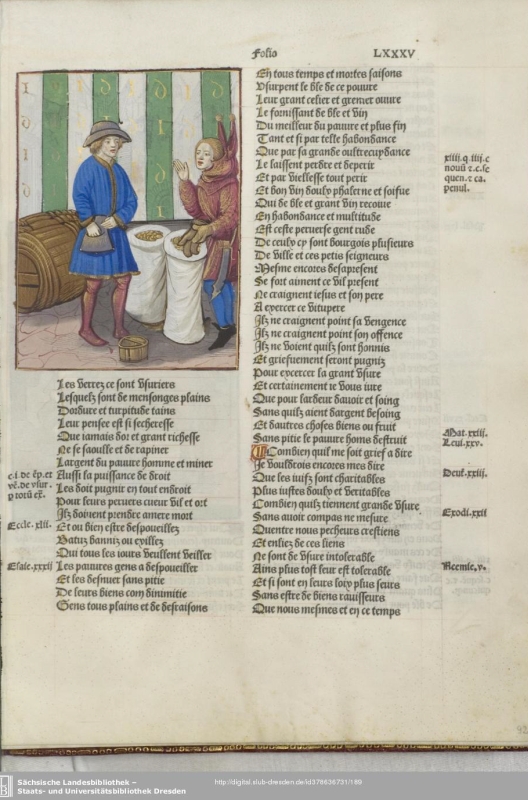 Folio LXXXV
Les verrez ce sont vsuriers
Lesquelz sont de mensonges plains
Dordure et turpitude tains
Leur pensee est si secheresse
Que iamais dor et grant richesse
Ne se saoulle et de rapiner
Largent du pauure homme et miner
Aussi la puissance de droit
Les doit pugnir en tout endroit
Pour leurs peruers cueur vil et ort
Ilz doiuent prendre amere mort
Et ou bien estre despoueillez
Batuz banniz ou exillez
Qui tous les iours veullent veiller
Les pauures gens a despoueiller
Et les desnuer sans pitie
De leurs biens com dinimitie
Gens tous plains et de desraisons
c. i. de ep. et
Eccle. xlii.
Esaie. xxxii
En tous temps et mortes saisons
Vsurpent le ble de ce pouure
Leur grant celier et grenier ouure
Le fornissant de ble et vin
Du meilleur du pauure et plus fin
Tant et si par telle habondance
Que par sa grande oultrecuydance
Le laissent perdre et deperir
Et par viellesse tout perir
Et bon vin doulx phalerne et soifue
Qui de ble et grant vin recoiue
En habondance et multitude
Est ceste peruerse gent rude
De ceulx cy sont bourgois plusieurs
De ville et ces petis seigneurs
Mesme encores desapresent
Se fort aiment ce vil present
Ne craignent iesus et son pere
A exercer ce vitupere
Ilz ne craignent point sa vengence
Ilz ne craignent point son offence
Ilz ne voient quilz sont honnis
Et griefuement seront pugniz
Pour exercer la grant vsure
Et certainement ie vous iure
Que pour lardeur dauoir et soing
Sans quilz aient dargent besoing
Et dautres choses biens ou fruit
Sans pitie le pauure home destruit
Combien quil me soit grief a dire
Je vouldrois encores mes dire
Que les iuifz sont charitables
Plus iustes doulx et veritables
Combien quilz tiennent grande vsure
Sans auoir compas ne mesure
Quentre nous pecheurs crestiens
Et enliez de ces liens
Ne sont de vsure intolerable
Ains plus tost leur est tolerable
Et si sont en leurs loix plus seurs
Sans estre de biens rauisseurs
Que nous mesmes et en ce temps
xiiii. q. iiij. c
nouit z. c. se
quen. z ca.
penul.
Mat. xxiii.
Leui. xxv.
Deut. xxiii.
Exodi. xxii
Neemie. v.
Sächsische Landesbibliothek –
Staats- und Universitätsbibliothek Dresden
http://digital.slub-dresden.de/id376636731/189